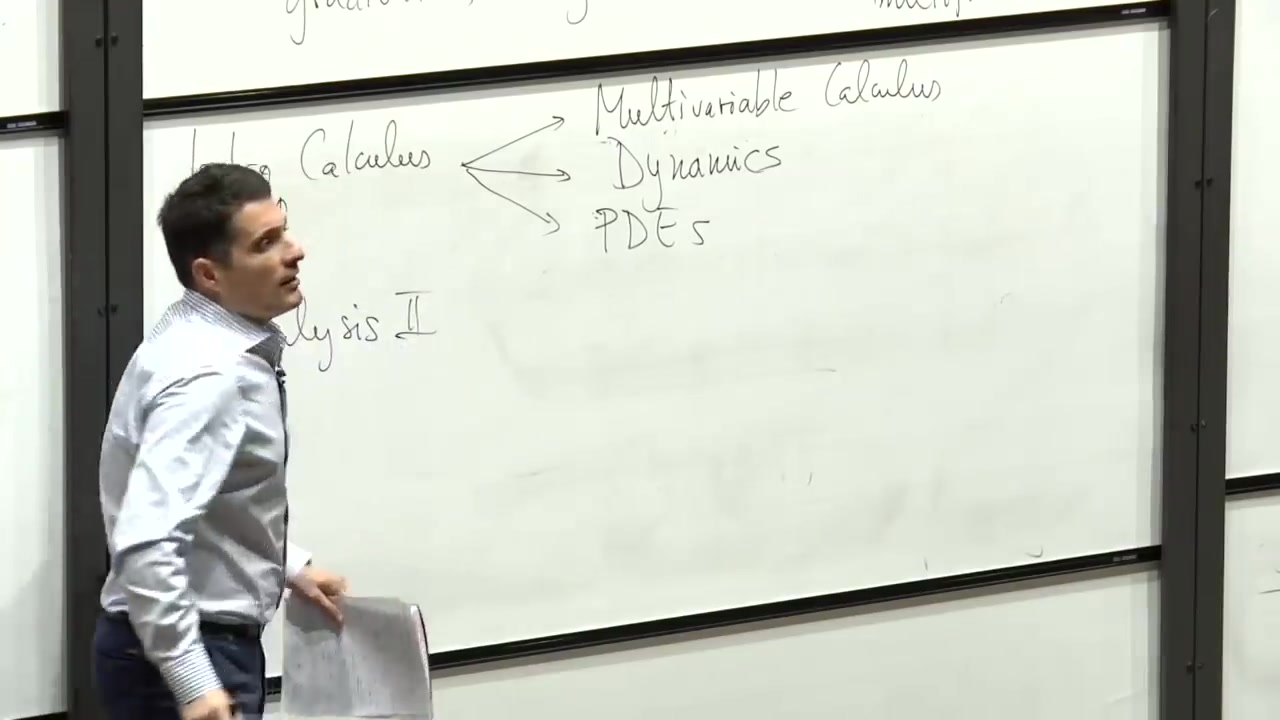 Calculus
Multivariable Calculus
Dynamics
PDEs
lysis II